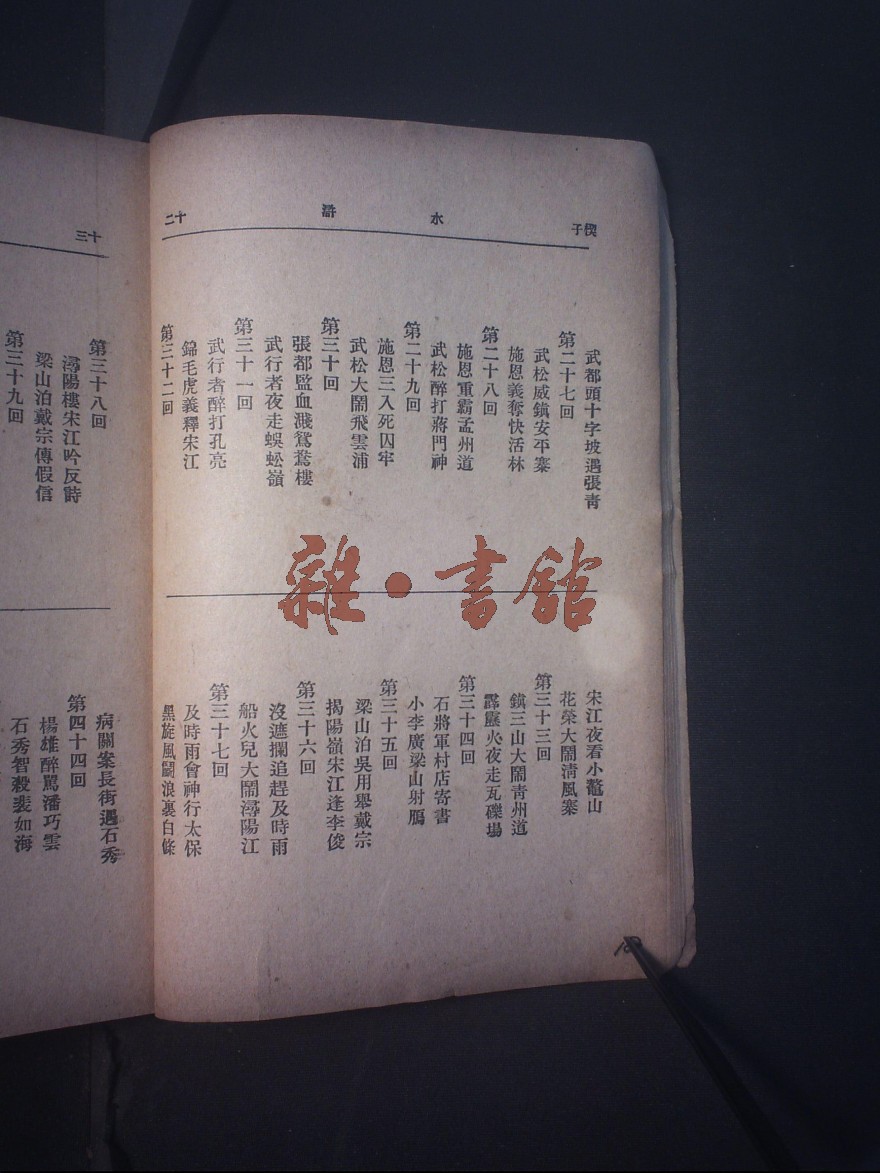 楔子
水滸
十二
武都頭十字坡遇張青
第二十七回
武松威鎮安平寨
施恩義奪快活林
第二十八回
施恩重霸孟州道
武松醉打蔣門神
第二十九回
施恩三入死囚牢
武松大鬧飛雲浦
第三十回
張都監血濺鴛鴦樓
武行者夜走蜈蚣嶺
第三十一回
武行者醉打孔亮
錦毛虎義釋宋江
第三十二回
宋江夜看小鼇山
花榮大鬧清風寨
第三十三回
鎮三山大鬧青州道
霹靂火夜走瓦礫場
第三十四回
石將軍村店寄書
小李廣梁山射鴈
第三十五回
梁山泊吳用舉戴宗
揭陽嶺宋江逢李俊
第三十六回
沒遮攔追趕及時雨
船火兒大鬧潯陽江
第三十七回
及時雨會神行太保
黑旋風鬭浪裏白條
十三
第三十八回
潯陽樓宋江吟反詩
梁山泊戴宗傳假信
第三十九回
病關索長街遇石秀
第四十四回
楊雄醉罵潘巧雲
石秀智殺裴如海
雜·書館